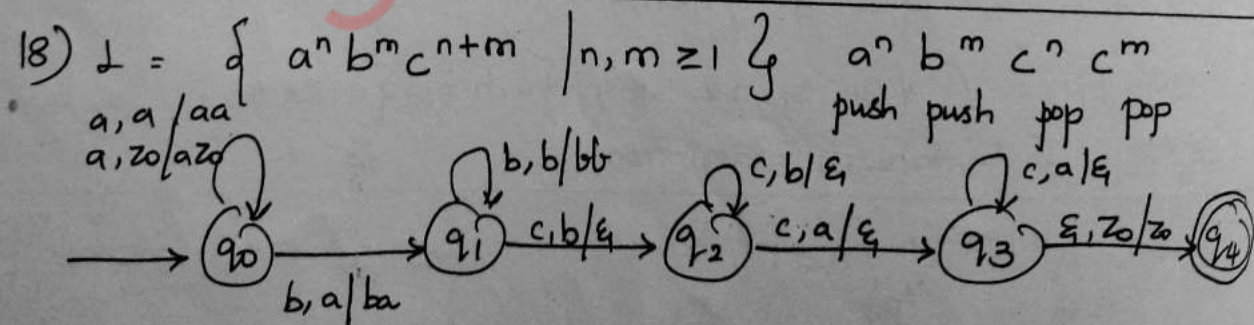 18) L = { a^n b^m c^{n+m} | n, m ≥ 1 } a^n b^m c^n c^m
push push pop pop
a, a / aa
a, z0 / az0
b, b / bb
c, b / ε
c, a / ε
q0
q1
c, b / ε
q2
c, a / ε
q3
ε, z0 / z0
q4
b, a / ba